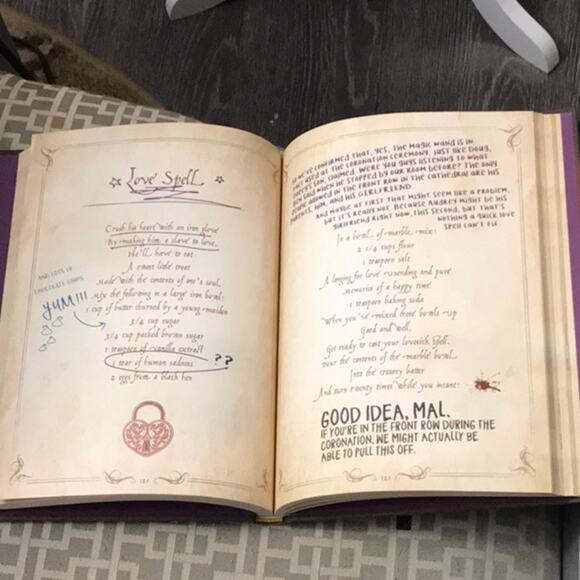 Love Spell
Crush his heart with an iron glove
By making him a slave to love,
He'll have to eat
A sweet little treat
Made with the contents of one's soul,
Mix the following in a large iron bowl:
1 cup of butter churned by a young maiden
3/4 cup sugar
3/4 cup packed brown sugar
1 teaspoon of vanilla extract
1 tear of human sadness ??
2 eggs from a black hen
AND LOTS OF
CHOCOLATE CHIPS.
YUM!!!
121
SO WE'VE CONFIRMED THAT, YES, THE MAGIC WAND IS IN
FACT USED AT THE CORONATION CEREMONY, JUST LIKE DOUG,
DOPEY'S SON, CLAIMED. WERE YOU GUYS LISTENING TO WHAT
BEN SAID WHEN HE STOPPED BY OUR ROOM BEFORE? THE ONLY
PEOPLE ALLOWED IN THE FRONT ROW IN THE CATHEDRAL ARE HIS
PARENTS, HIM, AND HIS GIRLFRIEND.
AND MAYBE AT FIRST THAT MIGHT SEEM LIKE A PROBLEM,
BUT IT'S REALLY NOT. BECAUSE AUDREY MIGHT BE HIS
GIRLFRIEND RIGHT NOW, THIS SECOND, BUT THAT'S
NOTHING A QUICK LOVE
SPELL CAN'T FIX.
In a bowl of marble, mix:
2 1/4 cups flour
1 teaspoon salt
A longing for love unending and pure
Memories of a happy time
1 teaspoon baking soda
When you've mixed these bowls up
Good and well,
Get ready to cast your lovesick spell.
Pour the contents of the marble bowl
Into the creamy batter
And turn twenty times while you incant:
GOOD IDEA, MAL.
IF YOU'RE IN THE FRONT ROW DURING THE
CORONATION, WE MIGHT ACTUALLY BE
ABLE TO PULL THIS OFF.